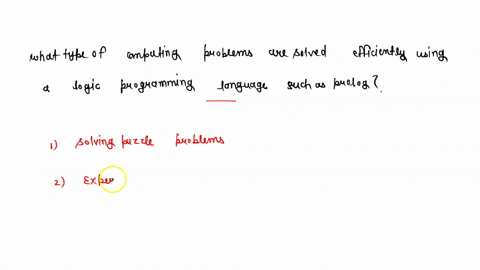 what type of computing problems are solved efficiently using
a logic programming language such as prolog?
1) solving puzzle problems
2) Exper